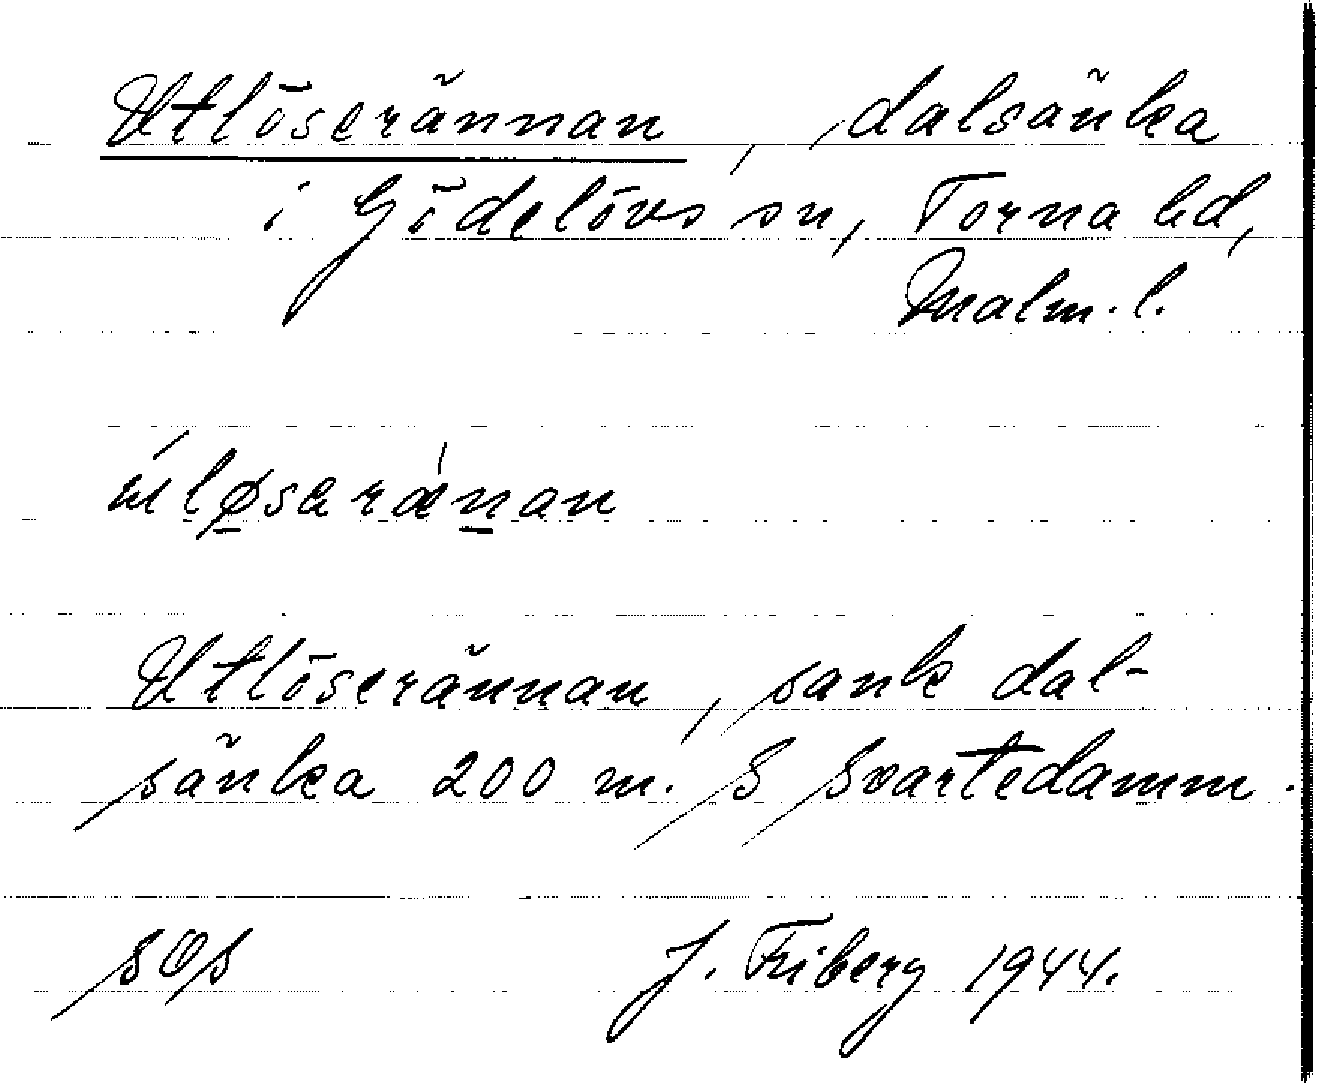 Utlöserännan, dalsänka
i Gödelövs sn, Torna hd,
Malm. l.
Utlöserännan, sank dal-
sänka 200 m. S Svartedamm.
SOS J. Friberg 1944.